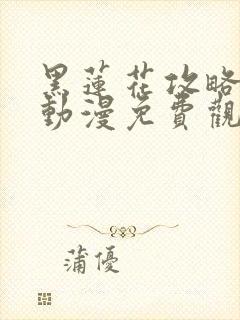 黑蓮花攻略
動漫免費觀
蒲優